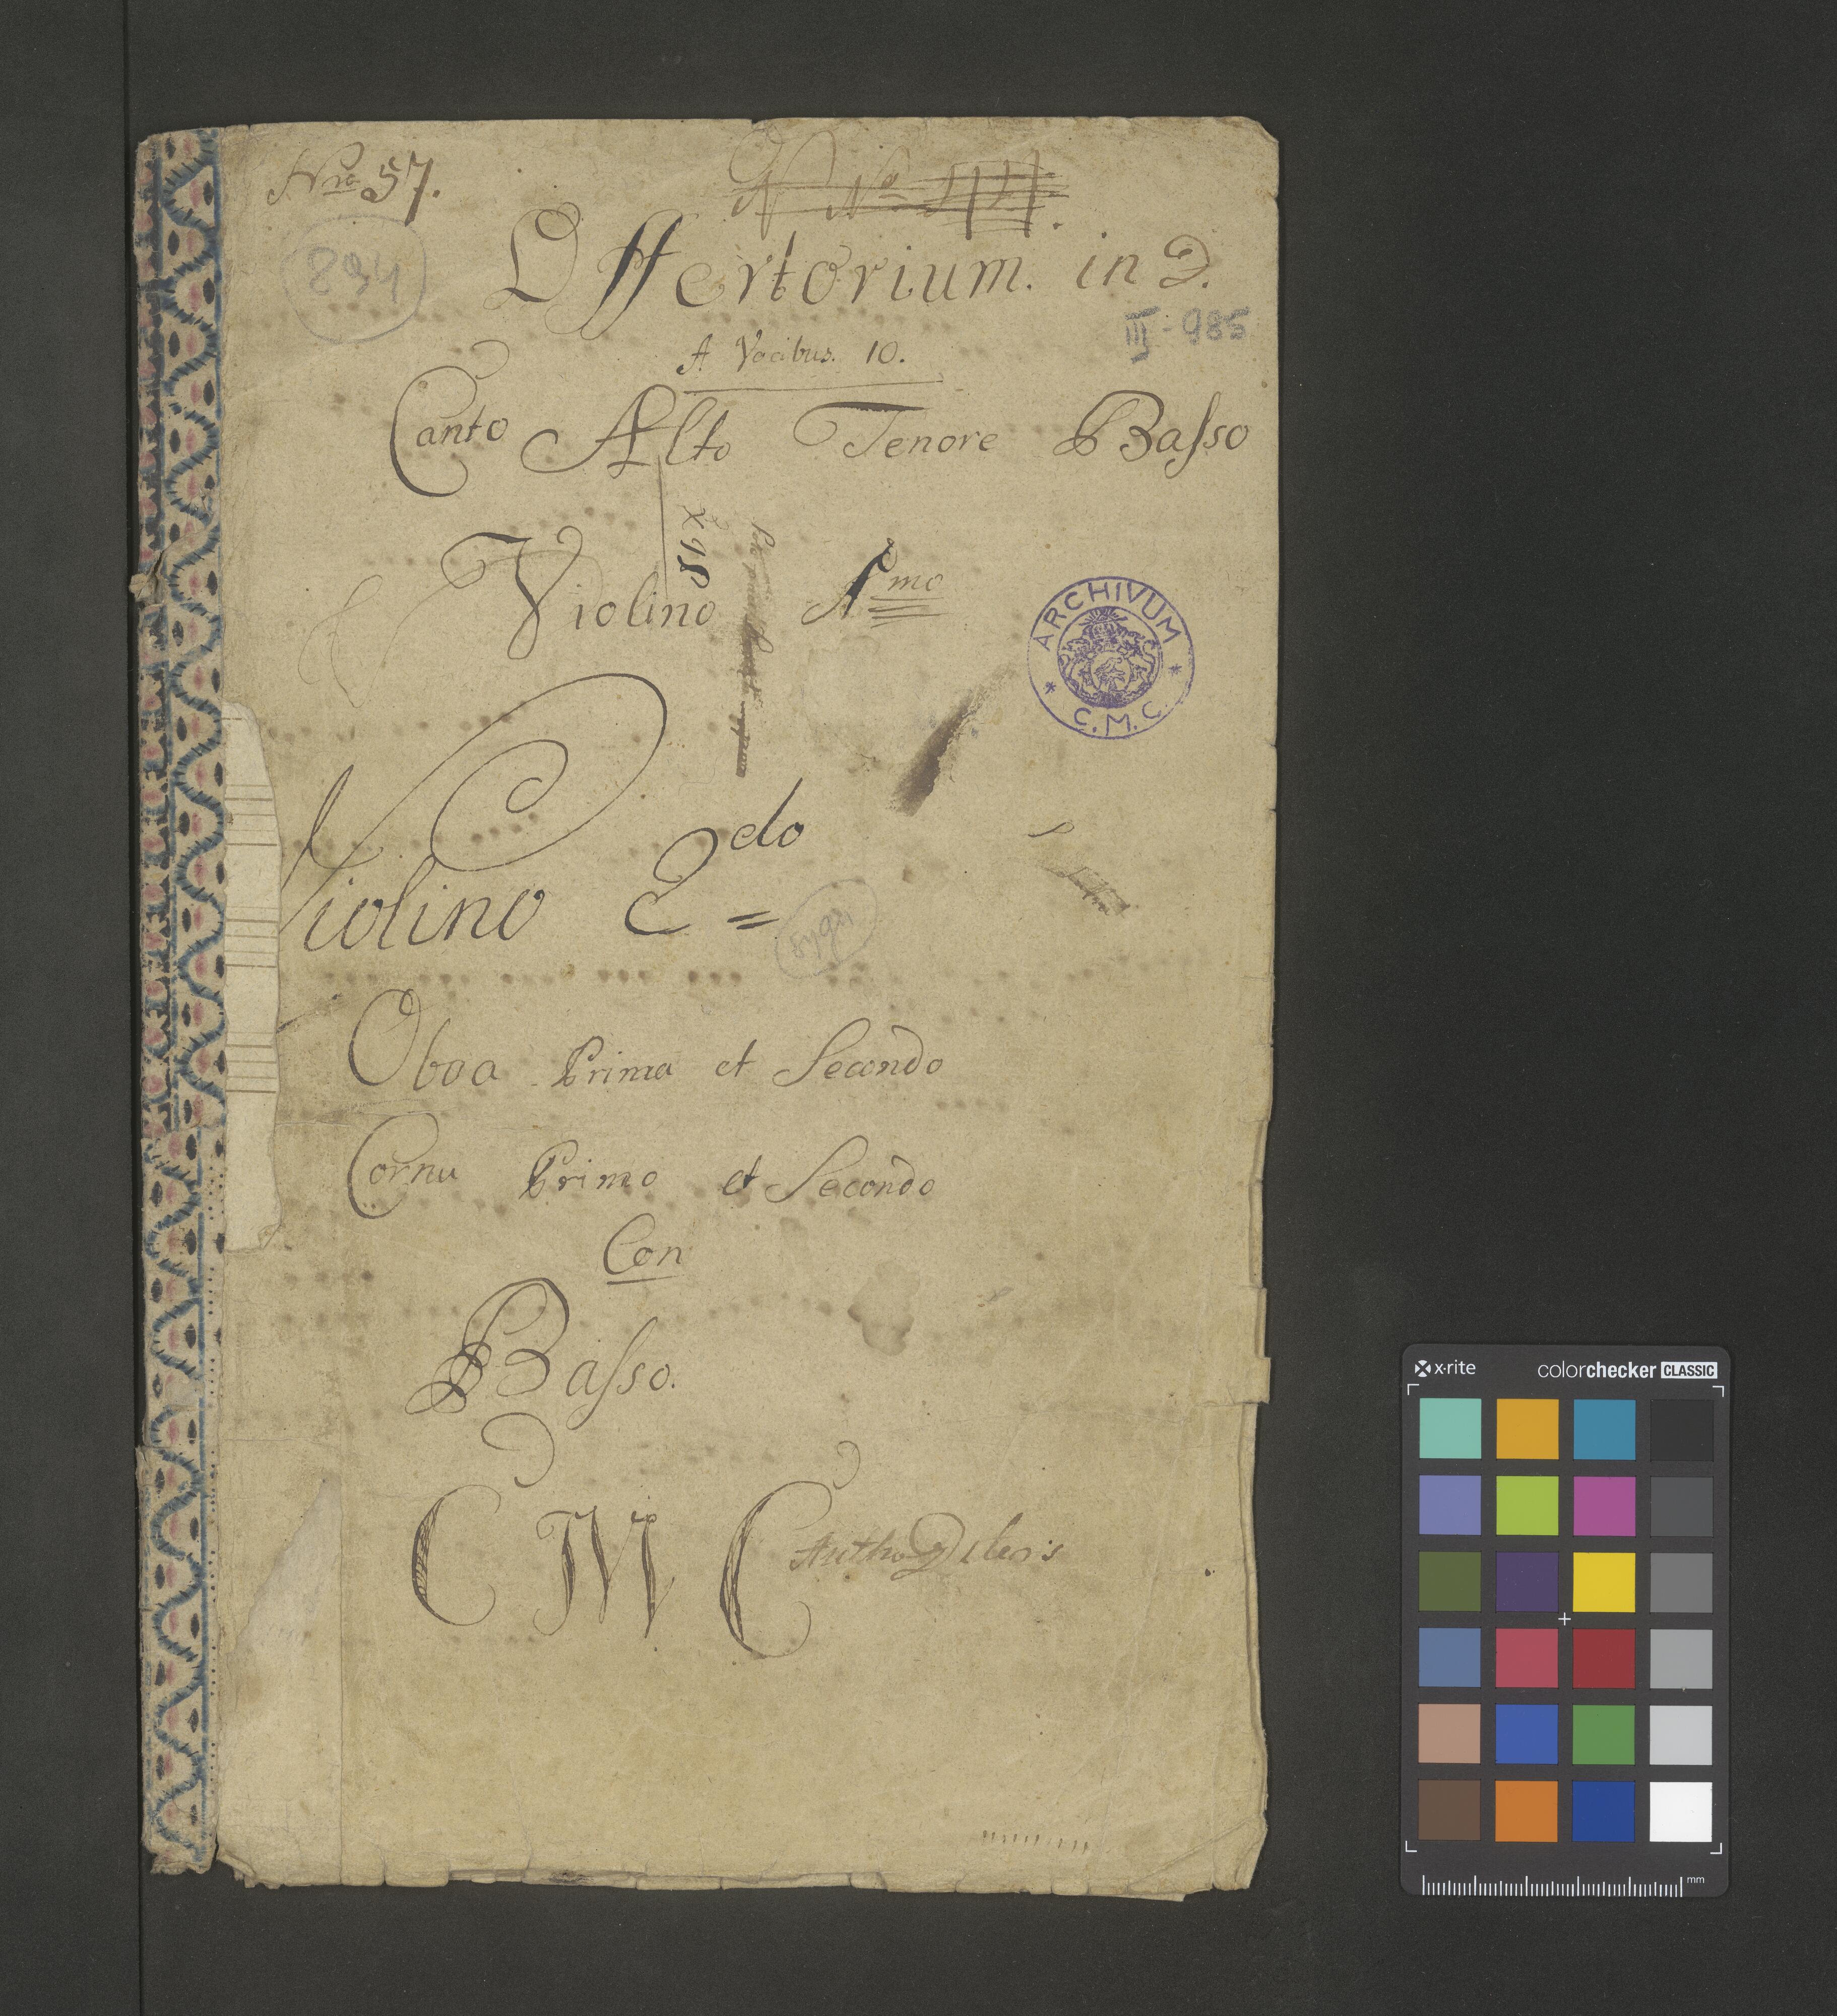 Nro 57.
894
Offertorium. in D.
III-985
A Vocibus. 10.
Canto Alto Tenore Basso
Violino 1mo
ARCHIVUM
C.M.C.
Violino 2do
Oboa Prima et Secondo
Cornu Primo et Secondo
Con
Basso.
C M C
x-rite colorchecker CLASSIC
mm